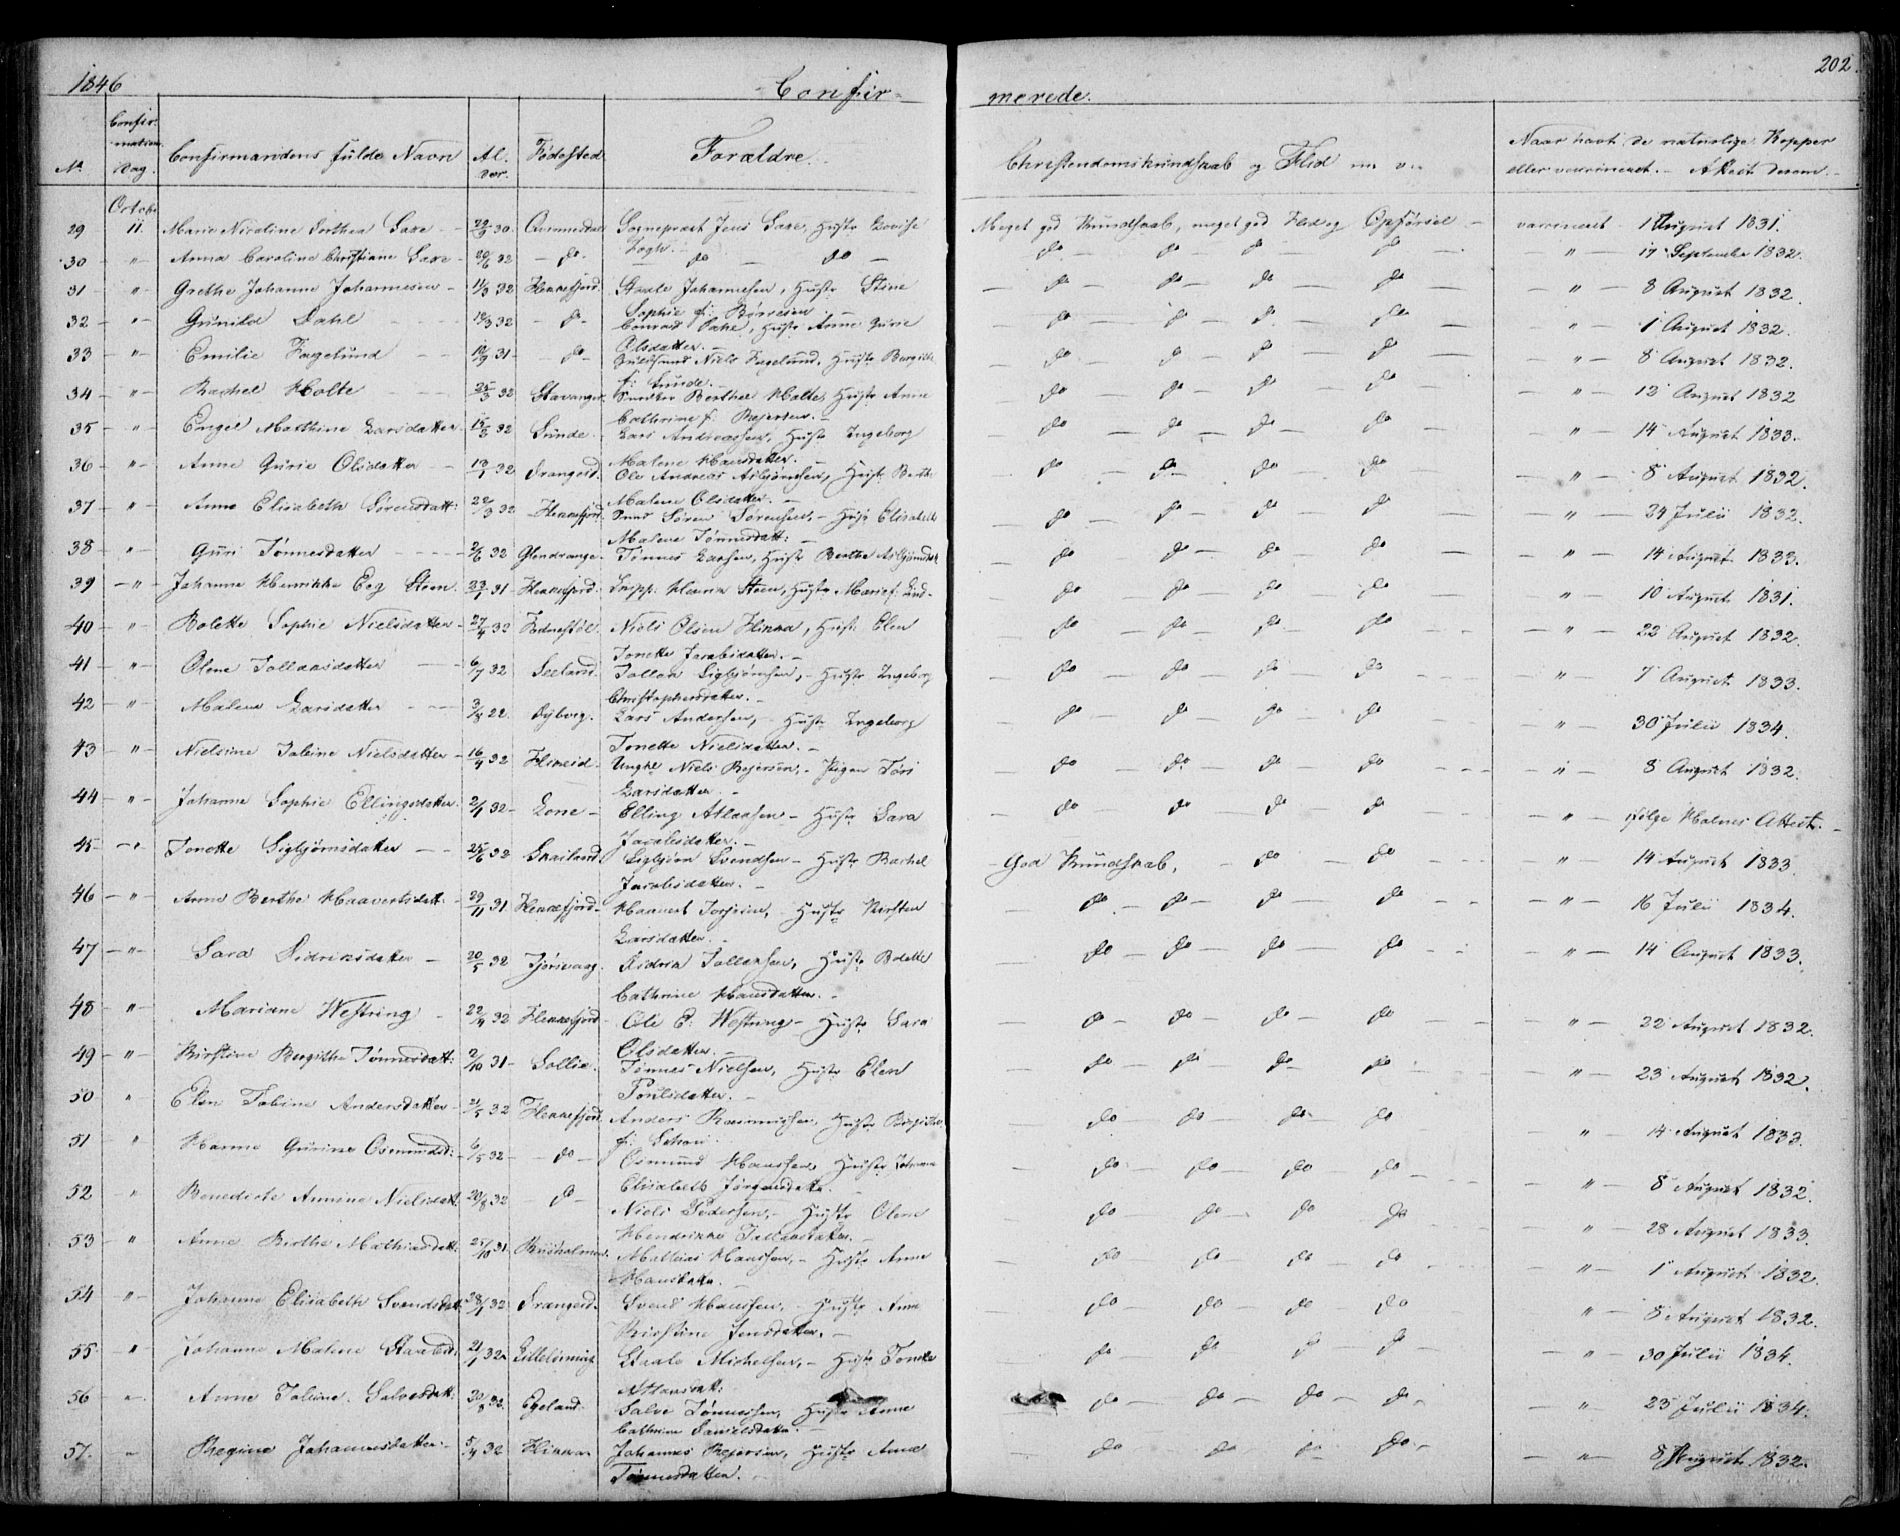 1846 Confir- merede. 202.
No. Confirmations Dag. Confirmandens fulde Navn Alder. Fødested Forældre. Christendomskundskab og Flid Naar havt de naturlige Kopper
eller vaccineret. - Attest derom. -
Octobr
29 11 Marie Nicoline Dorthea Saxe 29/9 30 Sognepræst Jens Saxe, Hustr Lovise Meget god Kundskab, meget god Flid og Opførsel - vaccineret - 1 August 1831.
30 " Anna Caroline Christiane Saxe - 20/6 32 - do - - do - do - do - do - do - do - " - 19 September 1832.
31 - " Grethe Johanne Johannesen - 11/3 32 Flekkefjord. Staale Johannesen, Hustr Stine - do - do - do - do - - " - 8 August 1832.
Sophie f: Børresen. -
32 - " Gunild Dahl - - - 10/3 32 - do - Conrad Dahl, Hustr Anne Gurie - do - do - do - do - " - 1 August 1832.
Olsdatter. -
33 - " Emilie Fagelund - - 10/9 31 - do - Guldsmed Niels Fagelund, Hustr Bergithe - do - do - do - do - - " - 8 August 1832.
f: Lunde. -
34 - " Rachel Holte - - - 25/3 32 Stavanger Snedker Berthel Holte, Hustr Anne - do - do - do - do - - " - 12 August 1832
Cathrine f. Rejersen. -
35 - " Engel Marthine Larsdatter 15/3 32 Sunde - Lars Andreassen, Hustr Ingeborg do - do - do - do - " - 14 August 1833.
Malene Hansdatter. -
36 - " Anne Gurie Olsdatter - 13/1 32 Drangeid. Ole Andreas Asbjørnsen, Hustr Berthe do - do - do - do - " - 8 August 1832.
Malene Olsdatter. -
37 - " Anne Elisabeth Sørensdatt: 22/3 32 - Flekkefjord. Søren Sørensen, - Hustr Elisabeth - do - do - do - do - " - 24 Julii 1832.
Malene Tønnesdatt: -
38 " Guri Tønnesdatter - - - 2/6 32 Glendrange - Tønnes Larsen, Hustr Berthe Asbjørnsdatt - do - do - do - do - - " - 14 August 1833.
39 - " - Johanne Henrikke Eeg Steen. 23/1 31 - Flekkefjord. Henrik Steen, Hustr Marie f. Lind - - do - do - do - do " - 10 August 1831.
40 - " Bolette Sophie Nielsdatter - 27/4 32 Niels Olsen Flikka, Hustr Elen - do - do - do - do - - " - 22 August 1832.
Tonette Jacobsdatter. -
41 - " Olene Tollaksdatter - 6/7 32 Seeland. Tollak Sigbjørnsen, - Hustr Ingeborg - do - do - do - do - " - 7 August 1833.
Christophersdatter.
42 - " Malene Larsdatter - - - 3/8 22. Lars Andersen, - Hustr Ingeborg - do - do - do - do - " - 30 Julii 1834.
Tonette Nielsdatter. -
43 - " Nielsine Tobine Nielsdatter - 16/4 32 Flikeid - Ungkl Niels Rejersen, - Pigen Tori - do - do - do - do - - - - " - 8 August 1832.
Larsdatter. -
44 - " Johanne Sophie Ellingsdatter. 2/1 32 - Lone - Elling Atlaksen - Hustr Sara - do - do - do - do - - " - ifølge Attest. -
Jacobsdatter. -
45 - " Tonette Sigbjørnsdatter - - 25/6 32 Sigbjørn Svendsen - Hustr Rachel - God Kundskab, - do - do - - " - 14 August 1833.
Jacobsdatter. -
46 - " Anne Berthe Haavertsdatt - 29/11 31 Flekkefjord - Haavert Torjesen, - Hustr Kirsten - do - do - do - do - - - " - 16 Julii 1834.
Larsdatter. -
47 - " - Sara Didriksdatter - 20/5 32 Tjørsvaag. Didrik Tollaksen, Hustr Bolette - do - do - do - do - - " - 14 August 1833.
Cathrine Hansdatter. -
48 " Mariane Westring - 22/4 32 Flekkefjord - Ole E: Westring - Hustr Sara - do - do - do - do - - " - 22 August 1832.
Olsdatter. -
49 - " Kirstine Bergithe Tønnesdatt: 2/10 31 - Sollie. Tønnes Nielsen, Hustr Elen - do - do - do - do - - " - 23 August 1832.
Poulsdatter. -
50 " Elen Tobine Andersdatter - 21/5 32 Flekkefjord Anders Rasmussen, Hustr Bergithe - do - do - do - do " - 14 August 1833.
51 " Hanne Gurine Osmundsd: - 6/5 32 - - do - Osmund Hanssen, Hustr Johanne - do - do - do - do - - " - 8 August 1832.
Elisabeth Jørgensdatter.
52 " Benedicte Annine Nielsdatt. 20/8 32 - do Niels Pedersen, - Hustr Olene - do - do - do - do " - 28 August 1833.
Hendrikke Tollaksdatter. -
53 " Anne Berthe Mathiasdatt: 25/10 31 Mathias Hanssen, - Hustr Anne - do - do - do - do " - 1 August 1832.
Hansdatter. -
54 " Johanne Elisabeth Svendsdatt. 28/1 32 Drangeid. Svend Hanssen, - Hustr Anne - do - do - do - do " - 8 August 1832.
Kirstine Jensdatter. -
55 " Johanne Malene Staalesd: 21/1 32 Staale Michelsen, - Hustr Tonette - do - do - do - do - - " - 30 Julii 1834.
Atlaksdatt:
56 " Anne Toline Salvesdatt: 20/8 32. Egeland. Salve Tønnessen, Hustr Anne do - do - do - do - - " - 23 Julii 1834.
Cathrine Danielsdatter. -
57. " Regine Johannesdatter - 5/4 32 Flikka - Johannes Rejersen, Hustr Anne - do - do - do - do - - " - 8 August 1832.
Tønnesdatter. -